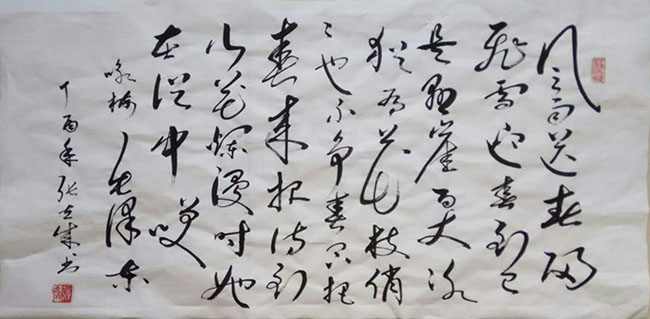 风雨送春归
飞雪迎春到已
是悬崖百丈冰
犹有花枝俏
〻也不争春只把
春来报待到
山花烂漫时她
在丛中笑
咏梅 毛泽东
丁酉年张立成书